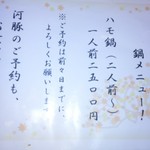 鍋メニュー！
ハモ鍋（二人前～）
一人前二五〇〇円
※ご予約は前々日までに、
よろしくお願いしま
河豚のご予約も、